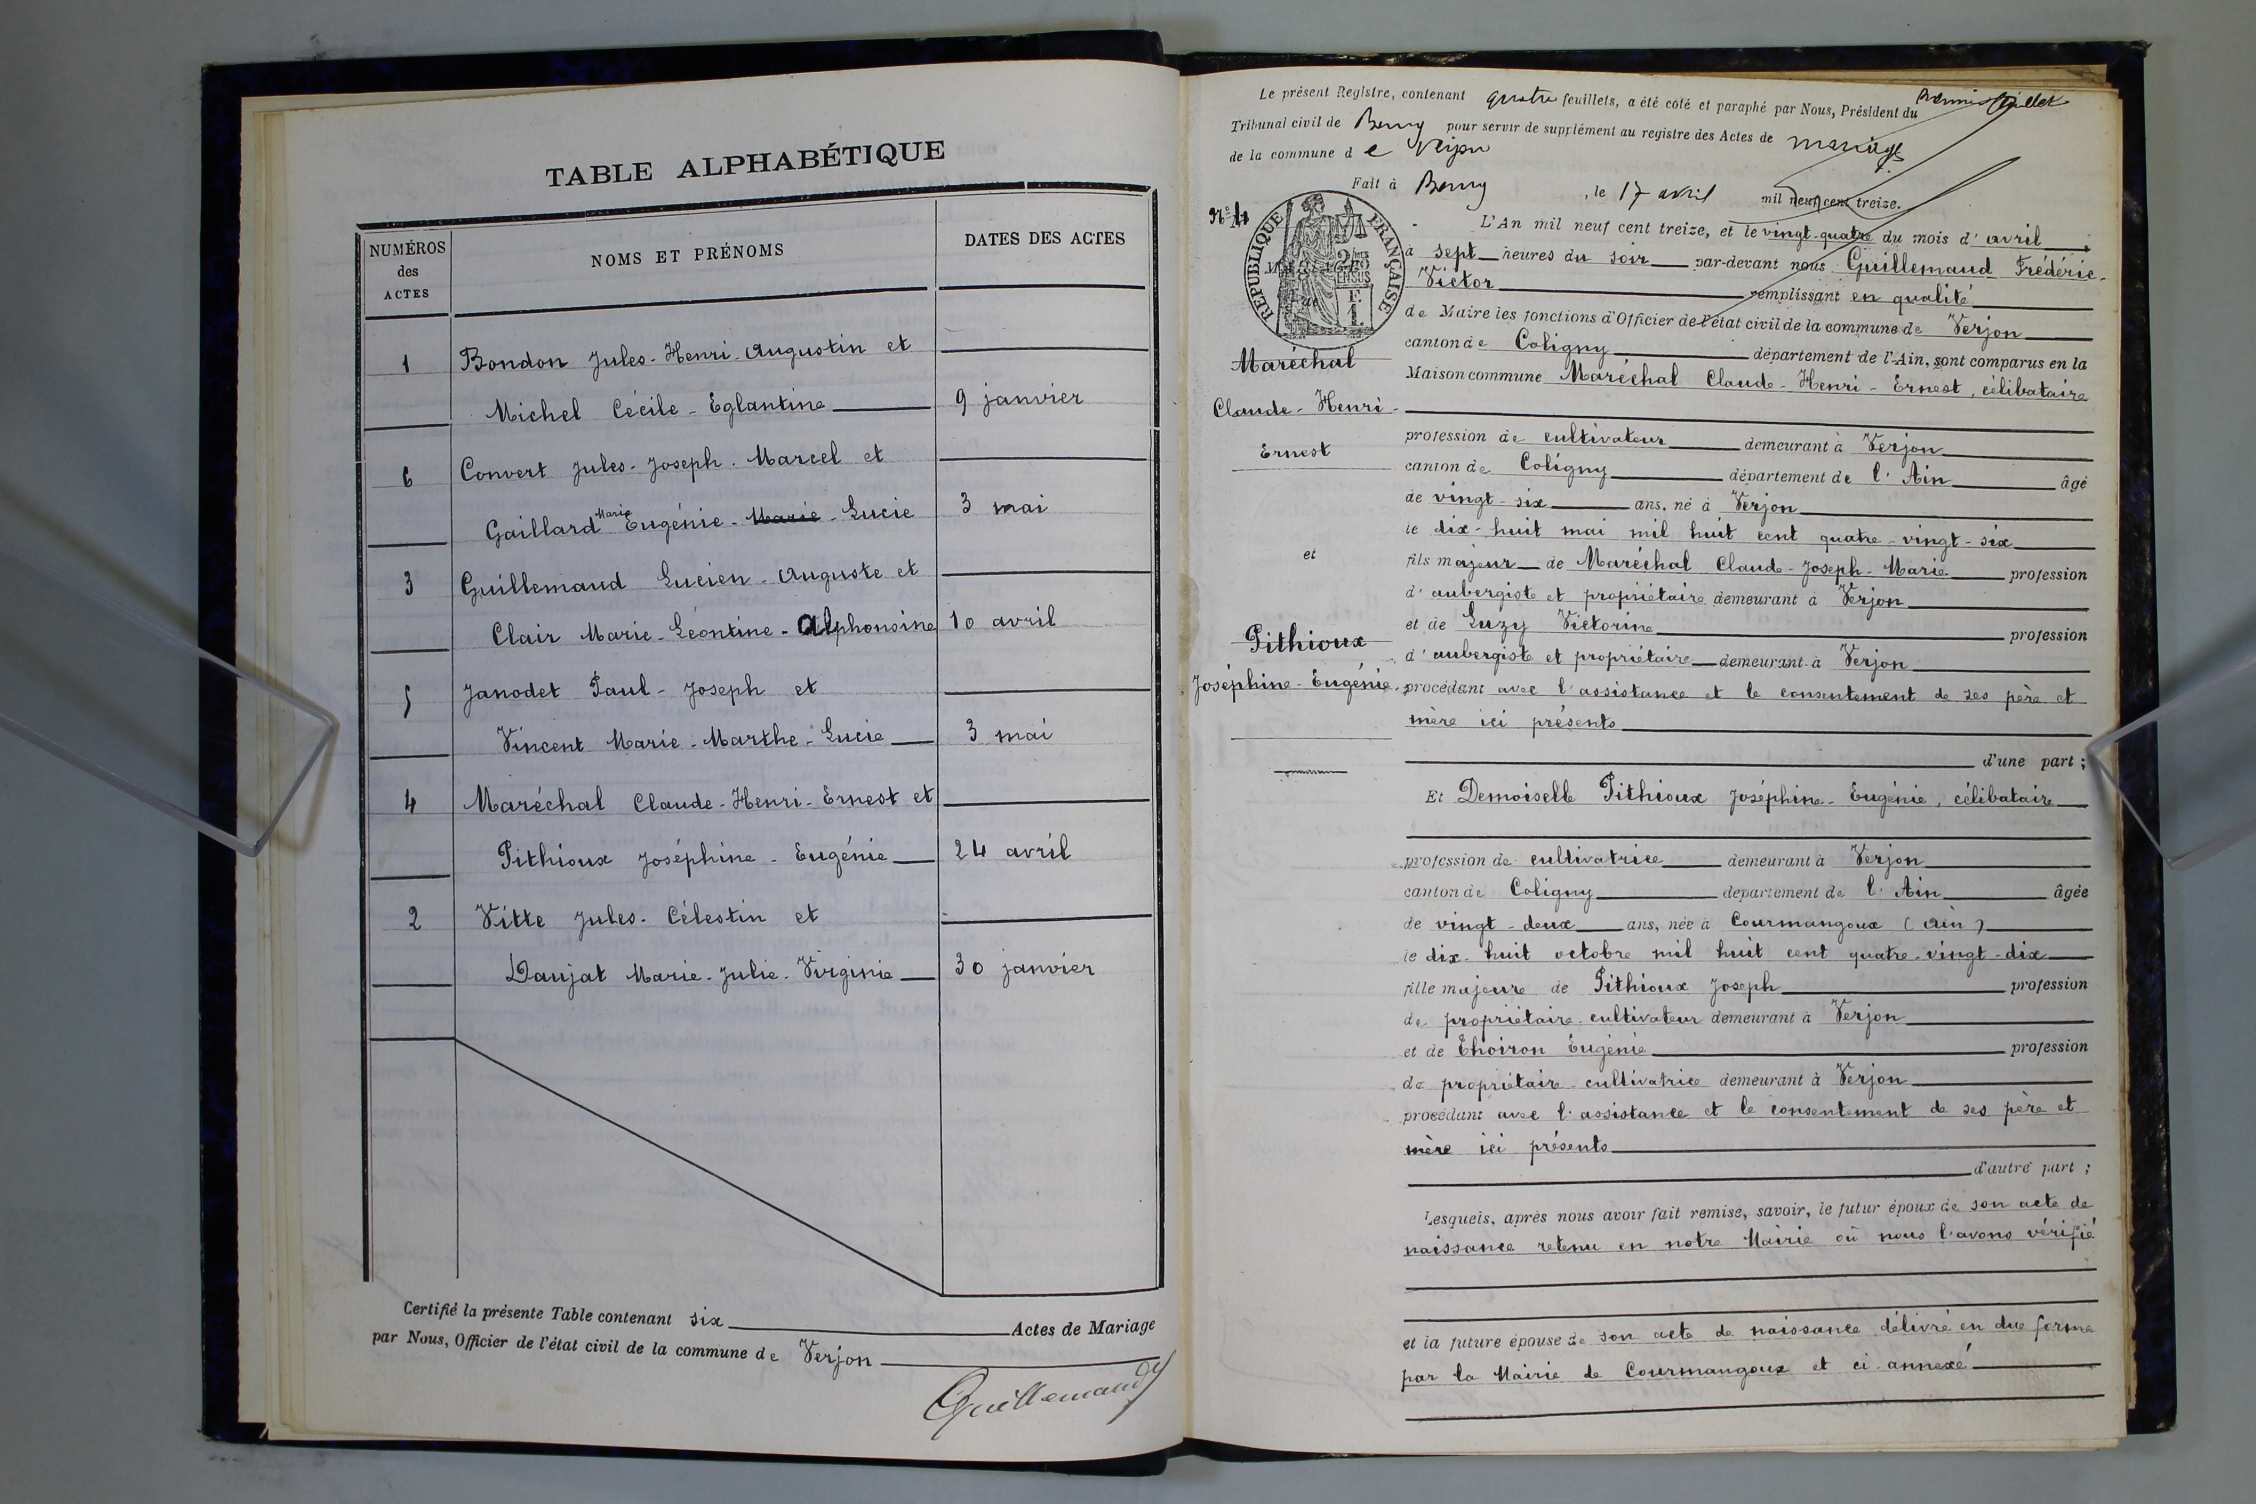 TABLE ALPHABÉTIQUE
NUMÉROS des ACTES
NOMS ET PRÉNOMS
DATES DES ACTES
1 Bondon Jules-Henri-Augustin et
Michel Cécile-Eglantine 9 janvier
6 Convert Jules-Joseph-Marcel et
Gaillard Marie Eugénie-Marie-Lucie 3 mai
3 Guillemaud Lucien-Auguste et
Clair Marie-Léontine-Alphonsine 10 avril
5 Janodet Paul-Joseph et
Vincent Marie-Marthe-Lucie 3 mai
4 Maréchal Claude-Henri-Ernest et
Pithioux Joséphine-Eugénie 24 avril
2 Vitte Jules-Célestin et
Daujat Marie-Julie-Virginie 30 janvier
Certifié la présente Table contenant six Actes de Mariage
par Nous, Officier de l'état civil de la commune de Verjon
Guillemaud
Premier feuillet
Le présent Registre, contenant quatre feuillets, a été coté et paraphé par Nous, Président du
Tribunal civil de Bourg pour servir de supplément au registre des Actes de mariage
de la commune de Verjon
Fait à Bourg, le 17 avril mil neuf cent treize.
N° 4
RÉPUBLIQUE FRANÇAISE
Maréchal
Claude-Henri-
Ernest
et
Pithioux
Joséphine-Eugénie
L'An mil neuf cent treize, et le vingt-quatre du mois d'avril,
à sept heures du soir par-devant nous Guillemaud Frédéric-
Victor remplissant en qualité
de Maire les fonctions d'Officier de l'état civil de la commune de Verjon
canton de Coligny département de l'Ain, sont comparus en la
Maison commune Maréchal Claude-Henri-Ernest, célibataire
profession de cultivateur demeurant à Verjon
canton de Coligny département de l'Ain âgé
de vingt-six ans, né à Verjon
le dix-huit mai mil huit cent quatre-vingt-six
fils majeur de Maréchal Claude-Joseph-Marie profession
d'aubergiste et propriétaire demeurant à Verjon
et de Luzy Victorine profession
d'aubergiste et propriétaire demeurant à Verjon
procédant avec l'assistance et le consentement de ses père et
mère ici présents
d'une part ;
Et Demoiselle Pithioux Joséphine-Eugénie, célibataire
profession de cultivatrice demeurant à Verjon
canton de Coligny département de l'Ain âgée
de vingt-deux ans, née à Courmangoux (Ain)
le dix-huit octobre mil huit cent quatre-vingt-dix
fille majeure de Pithioux Joseph profession
de propriétaire-cultivateur demeurant à Verjon
et de Thoiron Eugénie profession
de propriétaire-cultivatrice demeurant à Verjon
procédant avec l'assistance et le consentement de ses père et
mère ici présents
d'autre part ;
Lesquels, après nous avoir fait remise, savoir, le futur époux de son acte de
naissance retenu en notre Mairie où nous l'avons vérifié
et la future épouse de son acte de naissance délivré en due forme
par la Mairie de Courmangoux et ci-annexé